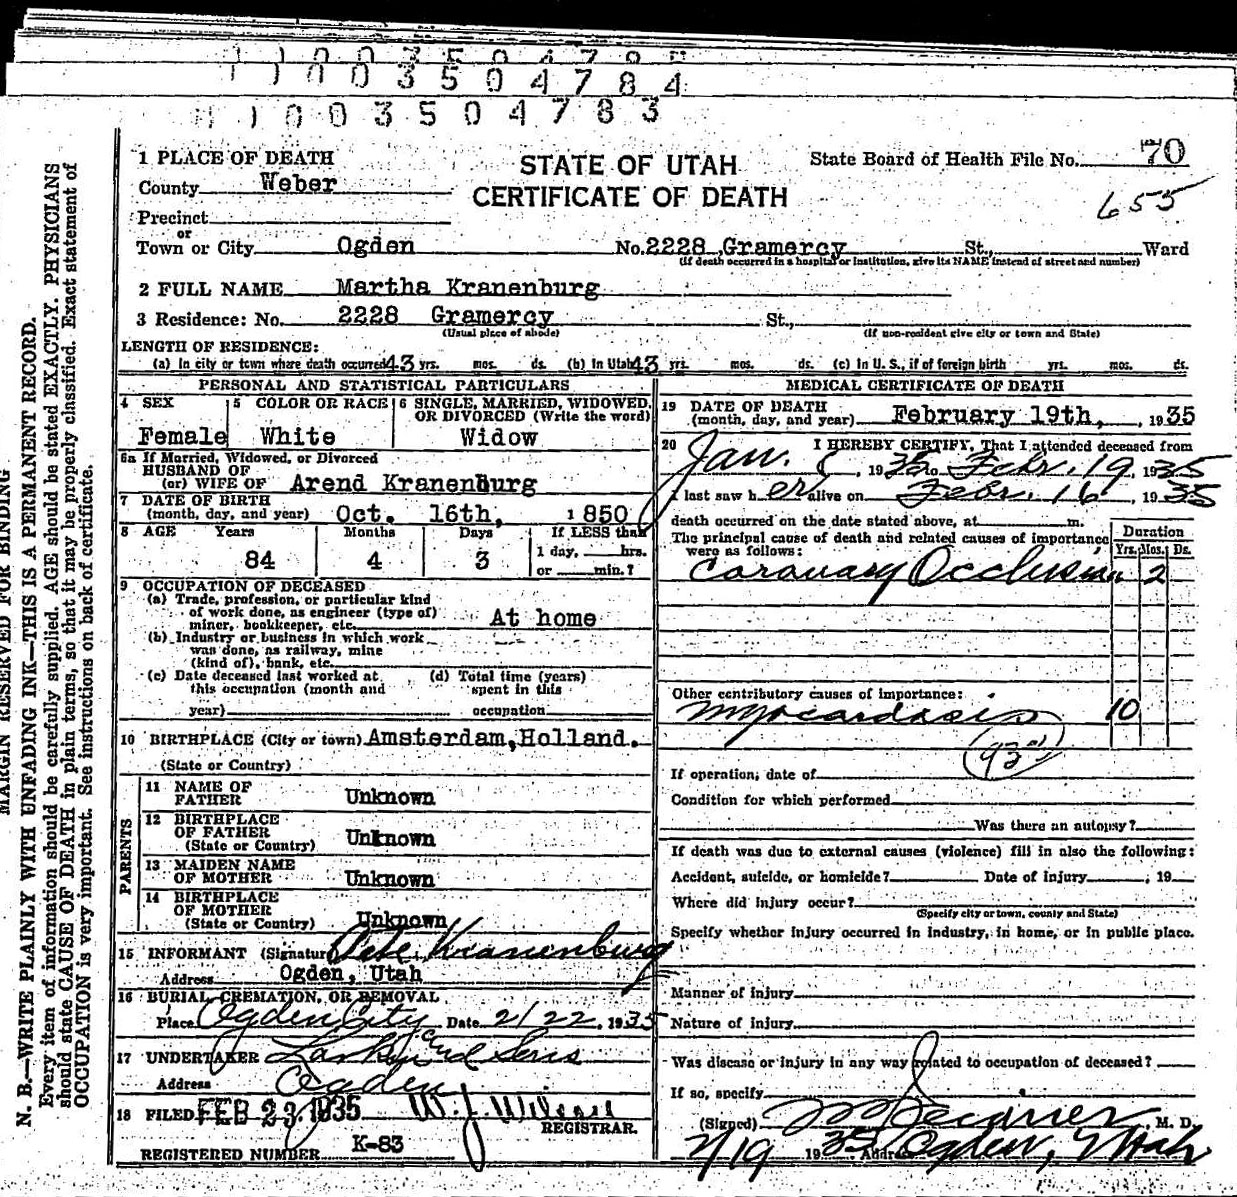 1 0 0 3 5 0 4 7 8 5
1 1 0 0 3 5 0 4 7 8 4
1 1 0 0 3 5 0 4 7 8 3
MARGIN RESERVED FOR BINDING
N. B.—WRITE PLAINLY WITH UNFADING INK—THIS IS A PERMANENT RECORD.
Every item of information should be carefully supplied. AGE should be stated EXACTLY. PHYSICIANS
should state CAUSE OF DEATH in plain terms, so that it may be properly classified. Exact statement of
OCCUPATION is very important. See instructions on back of certificate.
STATE OF UTAH
CERTIFICATE OF DEATH
State Board of Health File No. 70
655
1 PLACE OF DEATH
County Weber
Precinct
or
Town or City Ogden No. 2228 Gramercy St., Ward
(If death occurred in a hospital or institution, give its NAME instead of street and number)
2 FULL NAME Martha Kranenburg
3 Residence: No. 2228 Gramercy St.,
(Usual place of abode) (If non-resident give city or town and State)
LENGTH OF RESIDENCE:
(a) In city or town where death occurred 43 yrs. mos. ds. (b) In Utah 43 yrs. mos. ds. (c) In U. S., if of foreign birth yrs. mos. ds.
PERSONAL AND STATISTICAL PARTICULARS
4 SEX Female
5 COLOR OR RACE White
6 SINGLE, MARRIED, WIDOWED, OR DIVORCED (Write the word) Widow
6a If Married, Widowed, or Divorced
HUSBAND OF
(or) WIFE OF Arend Kranenburg
7 DATE OF BIRTH
(month, day, and year) Oct. 16th, 1850
8 AGE Years Months Days If LESS than
84 4 3 1 day, hrs.
or min.?
9 OCCUPATION OF DECEASED
(a) Trade, profession, or particular kind
of work done, as engineer (type of)
miner, bookkeeper, etc. At home
(b) Industry or business in which work
was done, as railway, mine
(kind of), bank, etc.
(c) Date deceased last worked at
this occupation (month and
year)
(d) Total time (years)
spent in this
occupation
10 BIRTHPLACE (City or town) Amsterdam, Holland.
(State or Country)
PARENTS
11 NAME OF
FATHER Unknown
12 BIRTHPLACE
OF FATHER
(State or Country) Unknown
13 MAIDEN NAME
OF MOTHER Unknown
14 BIRTHPLACE
OF MOTHER
(State or Country) Unknown
15 INFORMANT (Signature) Pete Kranenburg
Address Ogden, Utah
16 BURIAL, CREMATION, OR REMOVAL
Place Ogden City Date 2/22, 1935
17 UNDERTAKER Larkin and Sons
Address Ogden
18 FILED FEB 23 1935 W. J. Wilson
REGISTRAR.
REGISTERED NUMBER K-83
MEDICAL CERTIFICATE OF DEATH
19 DATE OF DEATH
(month, day, and year) February 19th, , 1935
20 I HEREBY CERTIFY, That I attended deceased from
Jan. 8, 1935 to Febr. 19, 1935
I last saw her alive on Febr. 16, 1935
death occurred on the date stated above, at m.
The principal cause of death and related causes of importance
were as follows:
Duration
Yrs. Mos. Ds.
Coronary Occlusion 2
Other contributory causes of importance:
Myocardosis 10
93
If operation, date of
Condition for which performed
Was there an autopsy?
If death was due to external causes (violence) fill in also the following:
Accident, suicide, or homicide? Date of injury , 19
Where did injury occur?
(Specify city or town, county and State)
Specify whether injury occurred in industry, in home, or in public place.
Manner of injury
Nature of injury
Was disease or injury in any way related to occupation of deceased?
If so, specify
(Signed) M. D.
2/19 1935 Address Ogden, Utah